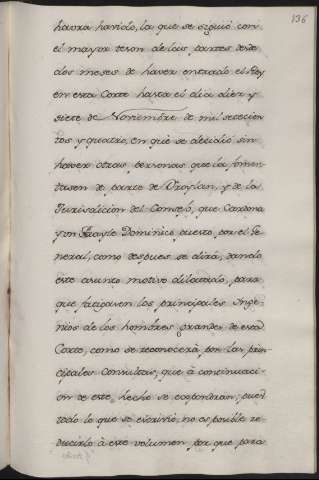 136
havra havido, la que se siguió con
el mayor teson de las partes desde
dos meses de haver entrado el Rey
en esta Corte hasta el dia diez y
siete de Noviembre de mil setecien
tos y quatro, en que se decidió sin
haver otras personas que la fomen
tasen de parte de Froylan, y de la
Jurisdicion del Consejo, que Cardona
y un Frayle Dominico puesto por el Ge
neral, como despues se dirá, dando
este asunto motivo dilatado, para
que fatigasen los principales Inge
nios de los hombres grandes de esta
Corte, como se reconocerá por las prin
cipales Consultas, que á continuaci
on de este hecho se expondran; pues
todo lo que se escrivió, no es posible re
ducirlo á este volumen, por que para